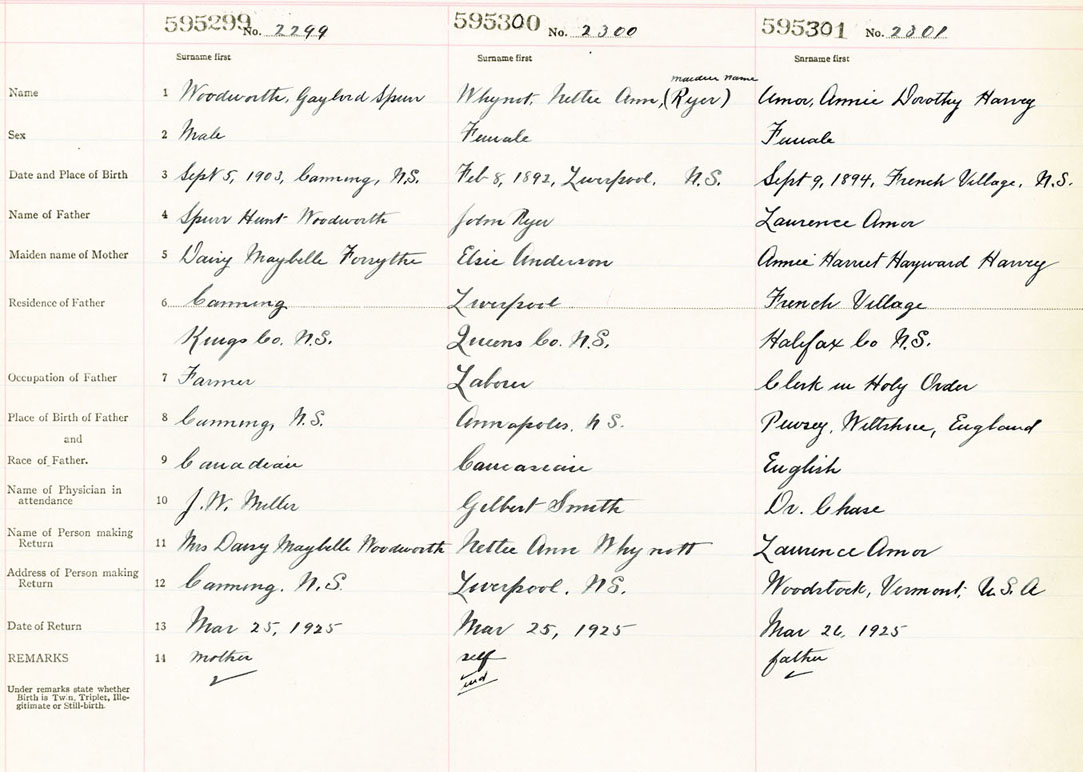 595299 No. 2299 595300 No. 2300 595301 No. 2301
Surname first Surname first Surname first
maiden name
Name 1 Woodworth, Gaylord Spurr Whynot, Nettie Ann, (Ryer) Amor, Annie Dorothy Harvey
Sex 2 Male Female Female
Date and Place of Birth 3 Sept 5, 1903, Canning, N.S. Feb 8, 1892, Liverpool, N.S. Sept 9, 1894, French Village, N.S.
Name of Father 4 Spurr Hunt Woodworth John Ryer Laurence Amor
Maiden name of Mother 5 Daisy Maybelle Forsythe Elsie Anderson Annie Harriet Hayward Harvey
Residence of Father 6 Canning Liverpool French Village
Kings Co. N.S. Queens Co. N.S. Halifax Co N.S.
Occupation of Father 7 Farmer Laborer Clerk in Holy Order
Place of Birth of Father 8 Canning, N.S. Annapolis, N S. Pewsey, Wiltshire, England
and
Race of Father. 9 Canadian Caucasian English
Name of Physician in
attendance 10 J. W. Miller Gilbert Smith Dr. Chase
Name of Person making
Return 11 Mrs Daisy Maybelle Woodworth Nettie Ann Whynott Laurence Amor
Address of Person making
Return 12 Canning, N.S. Liverpool, N.S. Woodstock, Vermont, U.S.A
Date of Return 13 Mar 25, 1925 Mar 25, 1925 Mar 26, 1925
REMARKS 14 mother self father
Under remarks state whether
Birth is Twin, Triplet, Ille-
gitimate or Still-birth.